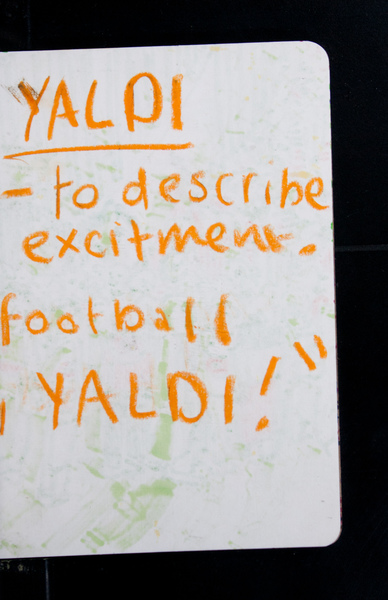 YALDI
- to describe
excitment.
football
, YALDI!"